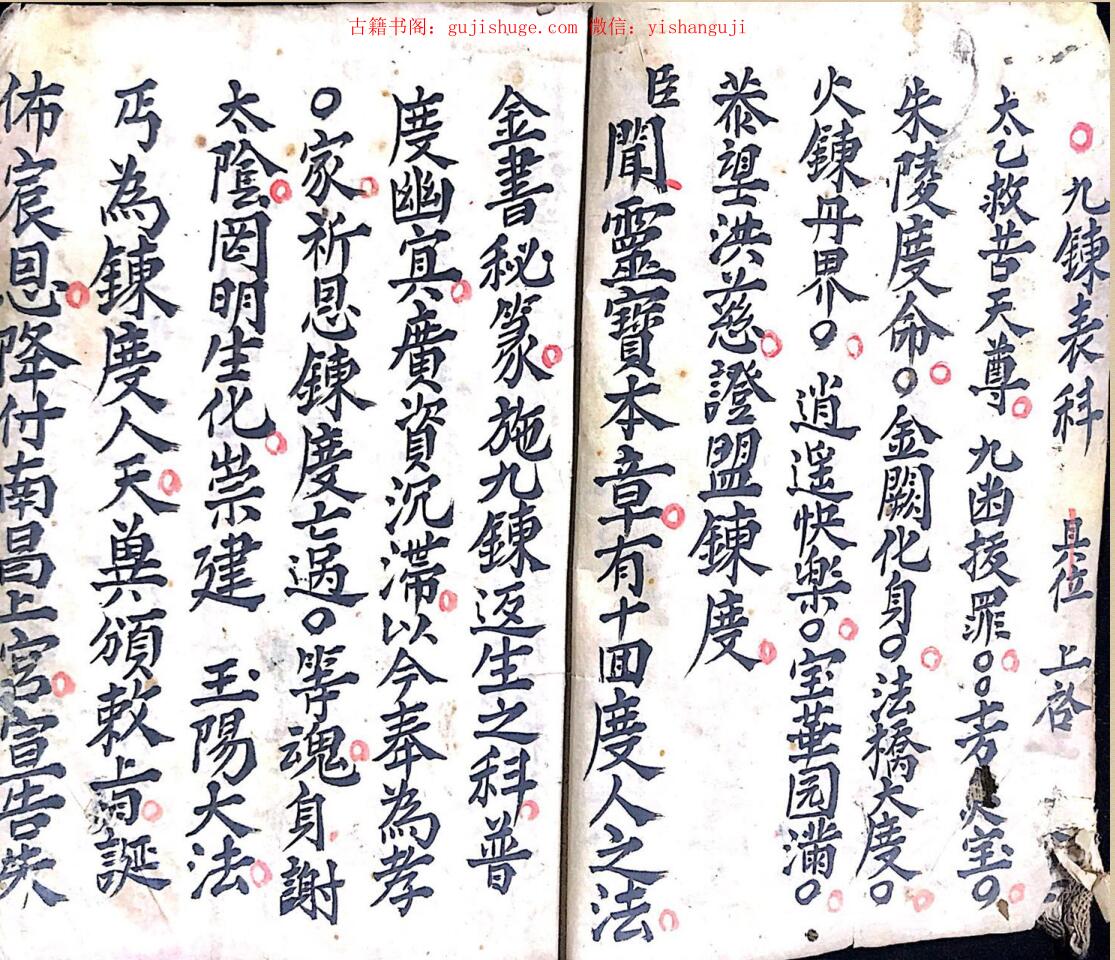 古籍书阁：gujishuge.com 微信：yishanguji
○九鍊表科 具位 上啓
太乙救苦天尊○九幽拔罪○○ 火宝○
朱陵度命○○金闕化身○○法橋大度○
火鍊丹界○○逍遥快樂○○宝華园滿○
恭望洪慈○證盟鍊度○
臣聞靈寶本章○有十囬度人之法○
金書秘篆○施九鍊返生之科○普
度幽㝠○廣資沉滯○以今奉為孝
○家○祈恩鍊度亡過○等魂○身謝
太陰○罔明生化○崇建 玉陽大法○
丐為鍊度人天○兾頒敕上 誕
佈宸恩○降付南昌上宮○宣告